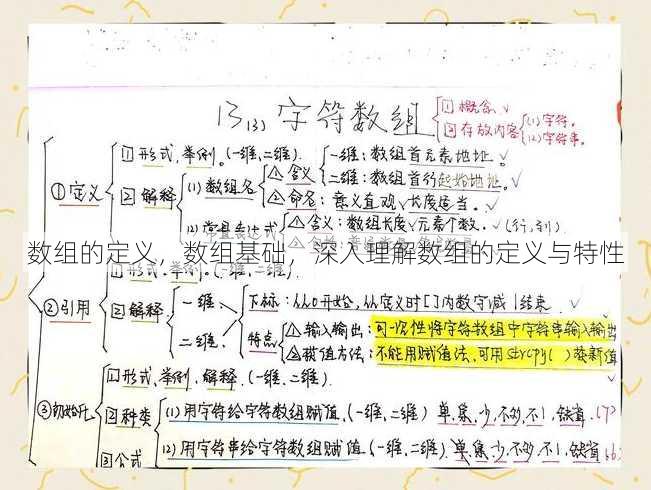 13.(3) 字符数组
①概念.√
②存放内容
(1)字符.
(2)字符串.
①定义
①形式,举例.(一维,二维).
②解释
(1)数组名
△含义
一维:数组首元素地址.√
二维:数组首行起始地址.√
△命名:意义直观√长度适当.√
(2)常量表达式
△含义:数组长度√元素个数.√(行,列).
数组的定义，数组基础，深入理解数组的定义与特性
①形式.举例.(一维.二维).
②引用
②解释
一维、
二维、
下标:从0开始,从定义时[]内数字减1结束.
特点
△输入输出:可一次性将字符数组中字符串输入输出
△赋值方法:不能用赋值法,可用strcpy( )获新值
③初始化
①形式,举例,解释.(一维、二维).
②种类
(1)用字符给字符数组赋值.(一维、二维)单.集.少,不够,不1,缺省.
(2)用字符串给字符数组赋值.(一维、二维).单.集.少,不够,不1,缺省
③公式